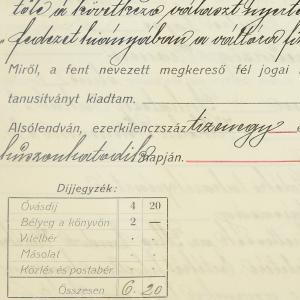 tőle a következő választ nyerte
„fedezet hiányában a váltóra fi
Miről, a fent nevezett megkereső fél jogai
tanusitványt kiadtam.
Alsólendván, ezerkilenczszáz tizenegy
huszonhatodik napján.
Dijjegyzék:
Óvásdij 4 20
Bélyeg a könyvön 2 —
Vitelbér
Másolat
Közlés és postabér
Összesen 6. 20